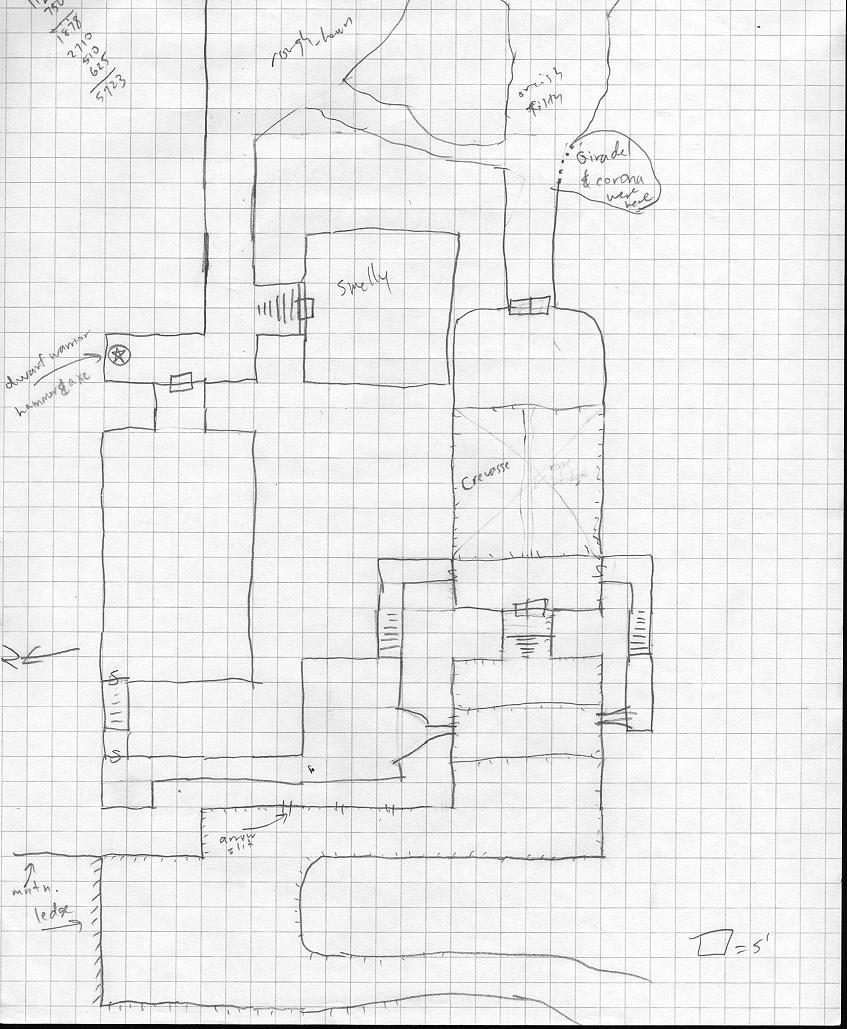 750
1878
2710
510
625
5723
rough-hewn
orcish
filth
Giradel
& corona
were
here
Smelly
dwarf warrior
hammer & axe
Crevasse
S
S
S
S
arrow
slit
mntn.
ledge
= 5'